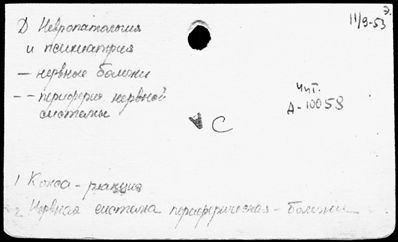 Э.
11/9-53
Д Невропатология
и психиатрия
— нервные болезни
— — периферия нервной
системы
Чит.
Д-10058
С
1 Конса - реакция
2 Нервная система периферическая - Болезни